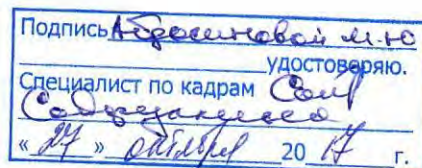 Подпись Абросимовой М.Ю
удостоверяю.
Специалист по кадрам
« 27 » октября 20 17 г.